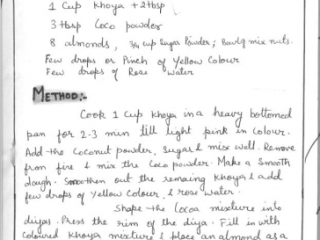 1 Cup Khoya + 2 tbsp
3 tbsp Coco powder
8 almonds, 3/4 cup Sugar Powder; Bowlg mix nuts.
Few drops or Pinch of Yellow Colour
Few drops of Rose Water
METHOD:-
Cook 1 Cup Khoya in a heavy bottomed
pan for 2-3 min till light pink in colour.
Add the Coconut powder, Sugar & mix well. Remove
from fire & mix the Coco powder. Make a Smooth
dough. Smoothen out the remaing Khoya & add
few drops of Yellow Colour, & rose water.
Shape the Cocoa mixture into
diyas. Press the rim of the diya. Fill in with
coloured Khoya mixture & place an almond as a